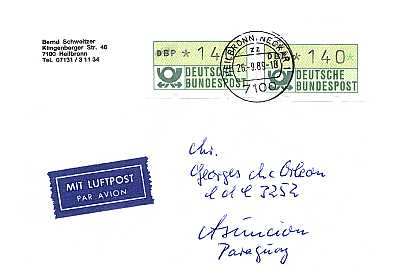 Bernd Schweitzer
Klingenberger Str. 46
7100 Heilbronn
Tel. 07131 / 3 11 34
DBP * 14
DEUTSCHE
BUNDESPOST
HEILBRONN, NECKAR 1
zz
26.-9.89-18
7100
DBP * 140
DEUTSCHE
BUNDESPOST
MIT LUFTPOST
PAR AVION
Georges de Orleon
3252
Asuncion
Paraguay